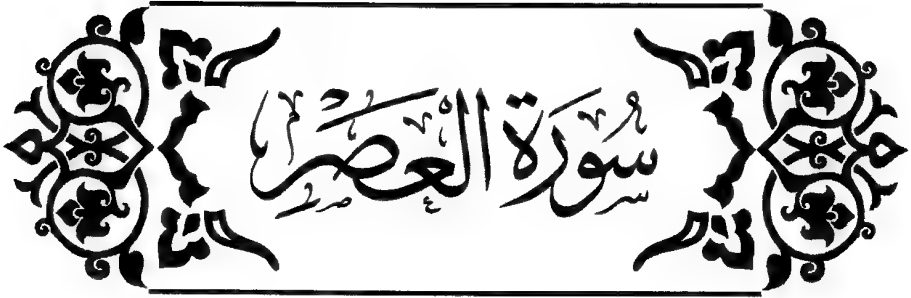 سُورَة العَصْر